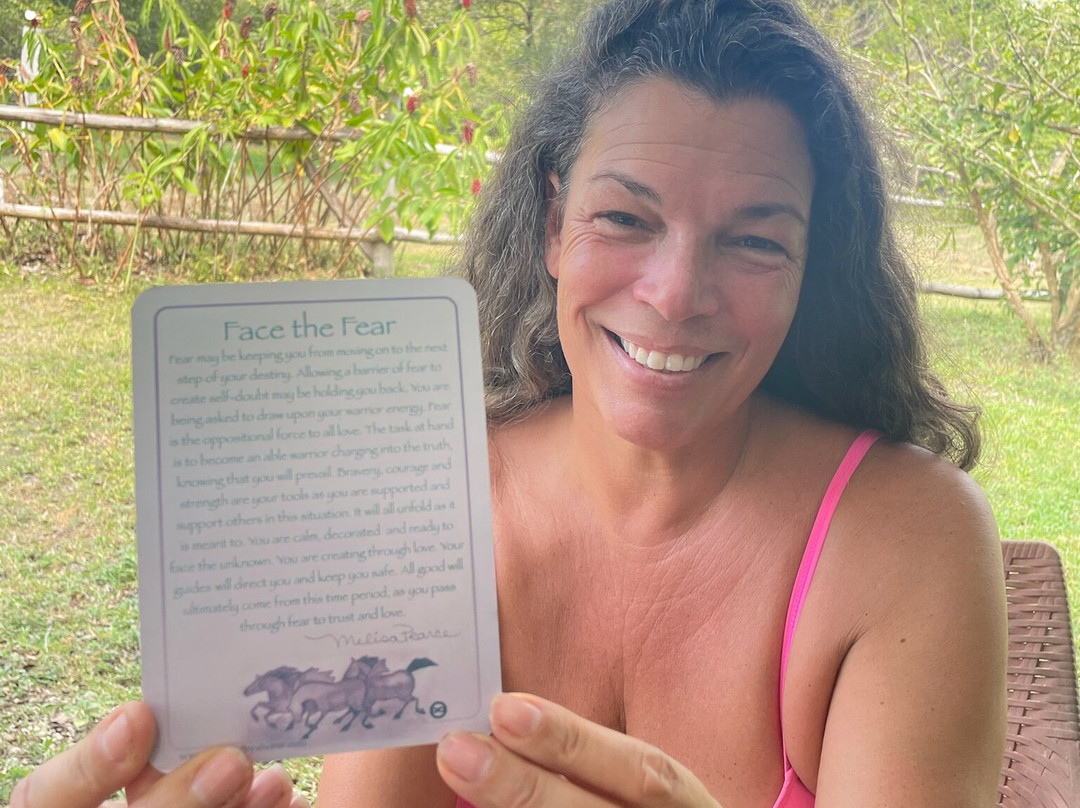 Face the Fear
Fear may be keeping you from moving on to the next
step of your destiny. Allowing a barrier of fear to
create self-doubt may be holding you back. You are
being asked to draw upon your warrior energy. Fear
is the oppositional force to all love. The task at hand
is to become an able warrior charging into the truth,
knowing that you will prevail. Bravery, courage and
strength are your tools as you are supported and
support others in this situation. It will all unfold as it
is meant to. You are calm, decorated and ready to
face the unknown. You are creating through love. Your
guides will direct you and keep you safe. All good will
ultimately come from this time period, as you pass
through fear to trust and love.
Melisa Pearce